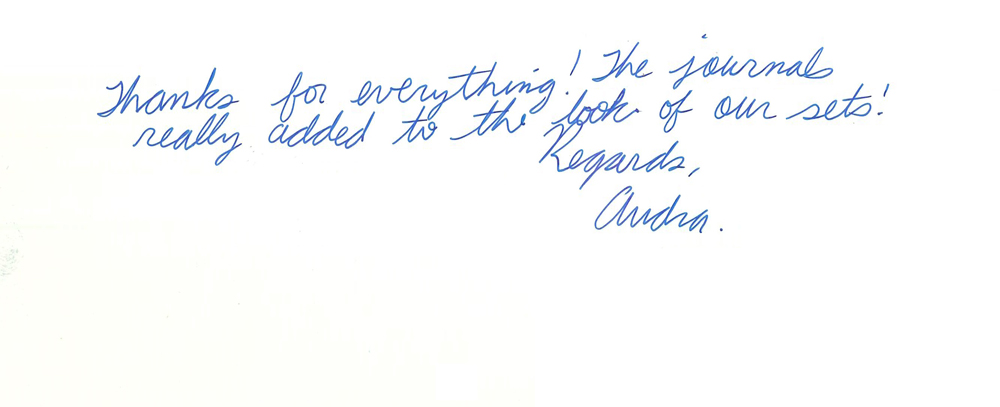 Thanks for everything! The journals
really added to the look of our sets!
Regards,
Audra.